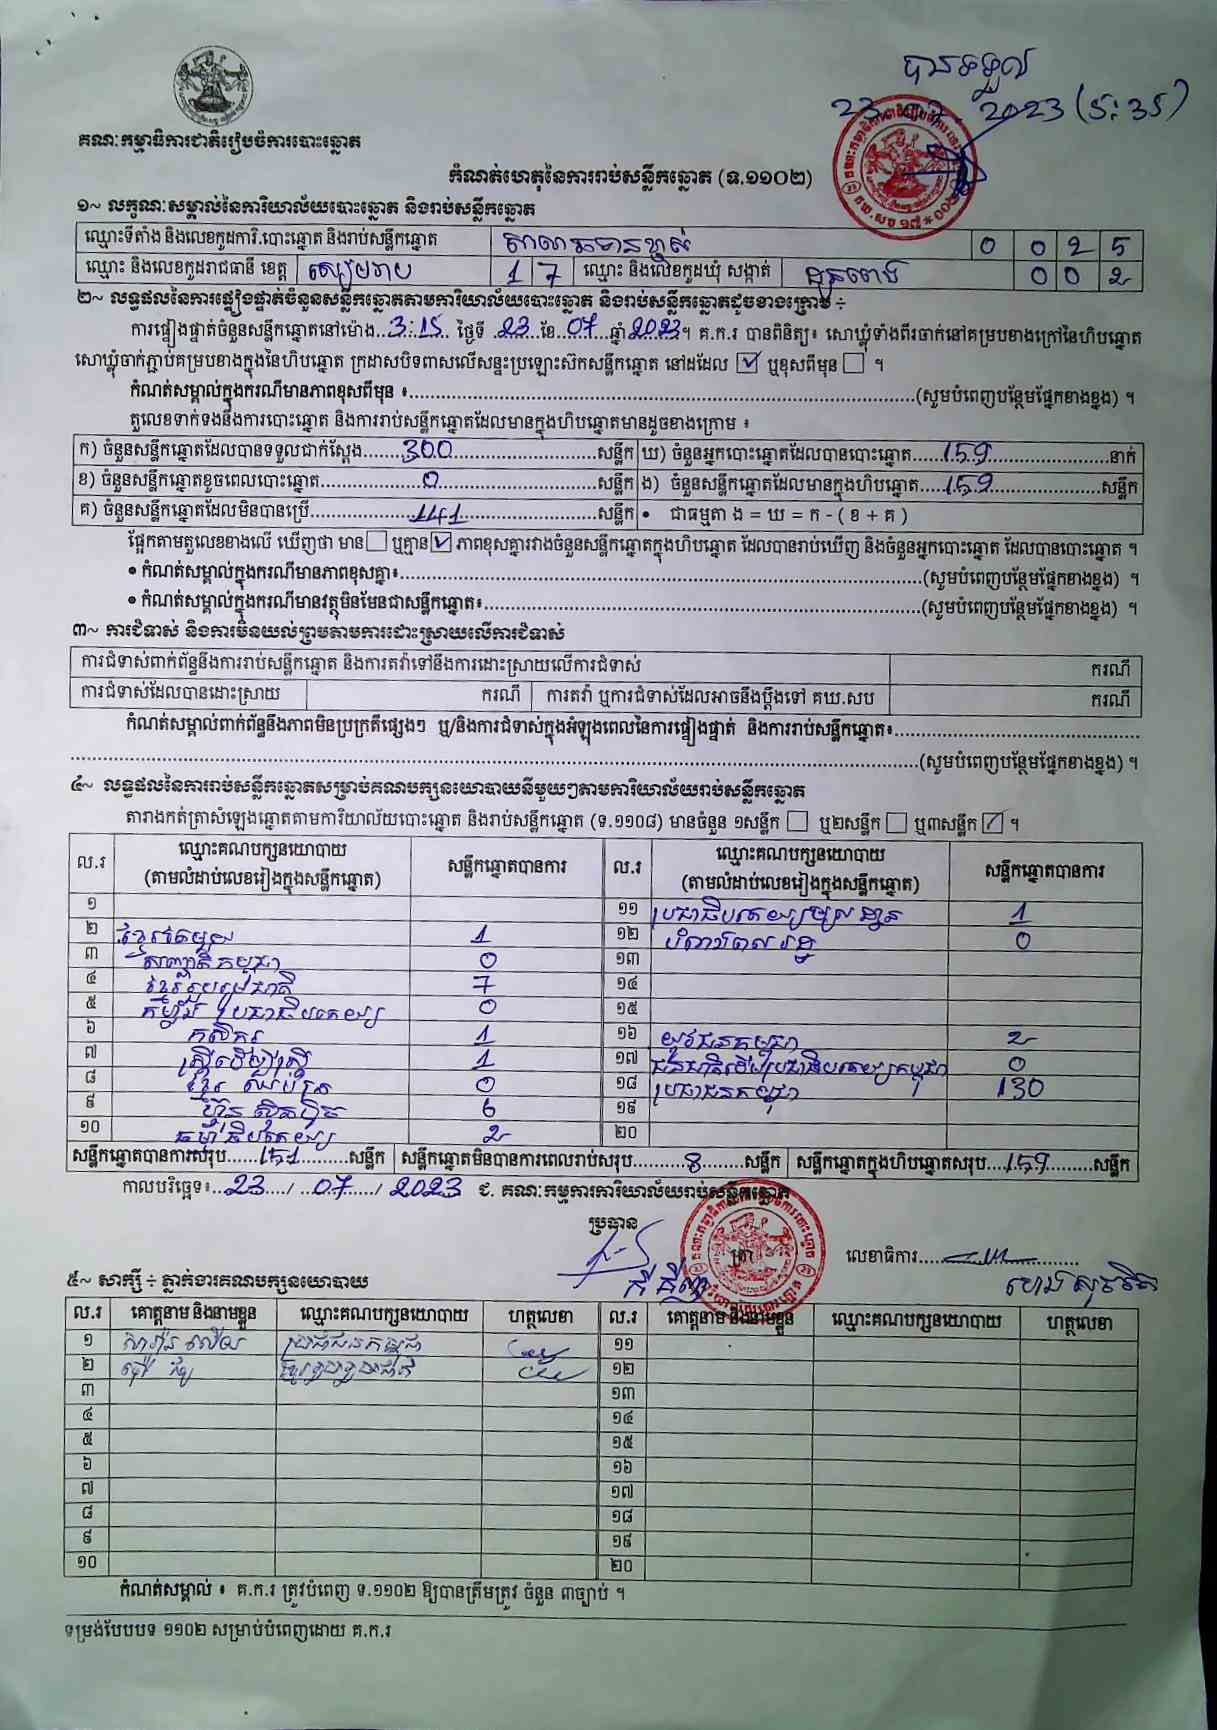 បានទទួល
23 07 2023 (5:35)
គណៈកម្មាធិការជាតិរៀបចំការបោះឆ្នោត
កំណត់ហេតុនៃការរាប់សន្លឹកឆ្នោត (ទ.១១០២)
១~ លក្ខណៈសម្គាល់នៃការិយាល័យបោះឆ្នោត និងរាប់សន្លឹកឆ្នោត
ឈ្មោះទីតាំង និងលេខកូដការិ.បោះឆ្នោត និងរាប់សន្លឹកឆ្នោត 0 0 2 5
ឈ្មោះ និងលេខកូដរាជធានី ខេត្ត សៀមរាប 1 7 ឈ្មោះ និងលេខកូដឃុំ សង្កាត់ ដូនពេង 0 0 2
២~ លទ្ធផលនៃការផ្ទៀងផ្ទាត់ចំនួនសន្លឹកឆ្នោតតាមការិយាល័យបោះឆ្នោត និងរាប់សន្លឹកឆ្នោតដូចខាងក្រោម ÷
ការផ្ទៀងផ្ទាត់ចំនួនសន្លឹកឆ្នោតនៅម៉ោង...3:15... ថ្ងៃទី .23..ខែ.07...ឆ្នាំ.2023។ គ.ក.រ បានពិនិត្យ៖ សោឃ្លុំទាំងពីរចាក់នៅគម្របខាងក្រៅនៃហិបឆ្នោត
សោឃ្លុំចាក់ភ្ជាប់គម្របខាងក្នុងនៃហិបឆ្នោត ក្រដាសបិទពាសលើសន្ទះប្រឡោះស៊កសន្លឹកឆ្នោត នៅដដែល ☑ ឬខុសពីមុន ☐ ។
កំណត់សម្គាល់ក្នុងករណីមានភាពខុសពីមុន ៖......(សូមបំពេញបន្ថែមផ្នែកខាងខ្នង) ។
តួលេខទាក់ទងនឹងការបោះឆ្នោត និងការរាប់សន្លឹកឆ្នោតដែលមានក្នុងហិបឆ្នោតមានដូចខាងក្រោម ៖
ក) ចំនួនសន្លឹកឆ្នោតដែលបានទទួលជាក់ស្តែង......300......សន្លឹក ឃ) ចំនួនអ្នកបោះឆ្នោតដែលបានបោះឆ្នោត......159......នាក់
ខ) ចំនួនសន្លឹកឆ្នោតខូចពេលបោះឆ្នោត......0......សន្លឹក ង) ចំនួនសន្លឹកឆ្នោតដែលមានក្នុងហិបឆ្នោត......159......សន្លឹក
គ) ចំនួនសន្លឹកឆ្នោតដែលមិនបានប្រើ......141......សន្លឹក • ជាធម្មតា ង = ឃ = ក - ( ខ + គ )
ផ្អែកតាមតួលេខខាងលើ ឃើញថា មាន ☐ ឬគ្មាន ☑ ភាពខុសគ្នារវាងចំនួនសន្លឹកឆ្នោតក្នុងហិបឆ្នោត ដែលបានរាប់ឃើញ និងចំនួនអ្នកបោះឆ្នោត ដែលបានបោះឆ្នោត ។
• កំណត់សម្គាល់ក្នុងករណីមានភាពខុសគ្នា៖......(សូមបំពេញបន្ថែមផ្នែកខាងខ្នង) ។
• កំណត់សម្គាល់ក្នុងករណីមានវត្ថុមិនមែនជាសន្លឹកឆ្នោត៖......(សូមបំពេញបន្ថែមផ្នែកខាងខ្នង) ។
៣~ ការជំទាស់ និងការមិនយល់ព្រមតាមការដោះស្រាយលើការជំទាស់
ការជំទាស់ពាក់ព័ន្ធនឹងការរាប់សន្លឹកឆ្នោត និងការតវ៉ាទៅនឹងការដោះស្រាយលើការជំទាស់ ករណី
ការជំទាស់ដែលបានដោះស្រាយ ករណី ការតវ៉ា ឬការជំទាស់ដែលអាចនឹងប្តឹងទៅ គឃ.សប ករណី
កំណត់សម្គាល់ពាក់ព័ន្ធនឹងភាពមិនប្រក្រតីផ្សេងៗ ឬ/និងការជំទាស់ក្នុងអំឡុងពេលនៃការផ្ទៀងផ្ទាត់ និងការរាប់សន្លឹកឆ្នោត៖......
......(សូមបំពេញបន្ថែមផ្នែកខាងខ្នង) ។
៤~ លទ្ធផលនៃការរាប់សន្លឹកឆ្នោតសម្រាប់គណបក្សនយោបាយនីមួយៗតាមការិយាល័យរាប់សន្លឹកឆ្នោត
តារាងកត់ត្រាសំឡេងឆ្នោតតាមការិយាល័យបោះឆ្នោត និងរាប់សន្លឹកឆ្នោត (ទ.១១០៨) មានចំនួន ១សន្លឹក ☐ ឬ២សន្លឹក ☐ ឬ៣សន្លឹក ☑ ។
ល.រ ឈ្មោះគណបក្សនយោបាយ (តាមលំដាប់លេខរៀងក្នុងសន្លឹកឆ្នោត) សន្លឹកឆ្នោតបានការ ល.រ ឈ្មោះគណបក្សនយោបាយ (តាមលំដាប់លេខរៀងក្នុងសន្លឹកឆ្នោត) សន្លឹកឆ្នោតបានការ
១ ១១ ប្រជាធិបតេយ្យមូលដ្ឋាន 1
២ ខ្មែរតែមួយ 1 ១២ បំពេញ 0
៣ សញ្ជាតិកម្ពុជា 0 ១៣
៤ ខ្មែររួបរួមជាតិ 7 ១៤
៥ កម្លាំងប្រជាធិបតេយ្យ 0 ១៥
៦ កសិករ 1 ១៦ យុវជនកម្ពុជា 2
៧ ស្ត្រីដើម្បីស្ត្រី 1 ១៧ ជនជាតិដើមប្រជាធិបតេយ្យកម្ពុជា 0
៨ ខ្មែរឈប់ក្រ 0 ១៨ ប្រជាជនកម្ពុជា 130
៩ ហ្វ៊ុនស៊ិនប៉ិច 6 ១៩
១០ ធម្មាធិបតេយ្យ 2 ២០
សន្លឹកឆ្នោតបានការសរុប......151......សន្លឹក សន្លឹកឆ្នោតមិនបានការពេលរាប់សរុប......8......សន្លឹក សន្លឹកឆ្នោតក្នុងហិបឆ្នោតសរុប...159......សន្លឹក
កាលបរិច្ឆេទ៖..23..../...07..../ 2023 ជ. គណៈកម្មការការិយាល័យរាប់សន្លឹកឆ្នោត
ប្រធាន
ត្រា
លេខាធិការ......
៥~ សាក្សី ÷ ភ្នាក់ងារគណបក្សនយោបាយ
ល.រ គោត្តនាម និងនាមខ្លួន ឈ្មោះគណបក្សនយោបាយ ហត្ថលេខា ល.រ គោត្តនាម និងនាមខ្លួន ឈ្មោះគណបក្សនយោបាយ ហត្ថលេខា
១ ប្រជាជនកម្ពុជា ១១
២ ១២
៣ ១៣
៤ ១៤
៥ ១៥
៦ ១៦
៧ ១៧
៨ ១៨
៩ ១៩
១០ ២០
កំណត់សម្គាល់ ៖ គ.ក.រ ត្រូវបំពេញ ទ.១១០២ ឱ្យបានត្រឹមត្រូវ ចំនួន ៣ច្បាប់ ។
ទម្រង់បែបបទ ១១០២ សម្រាប់បំពេញដោយ គ.ក.រ